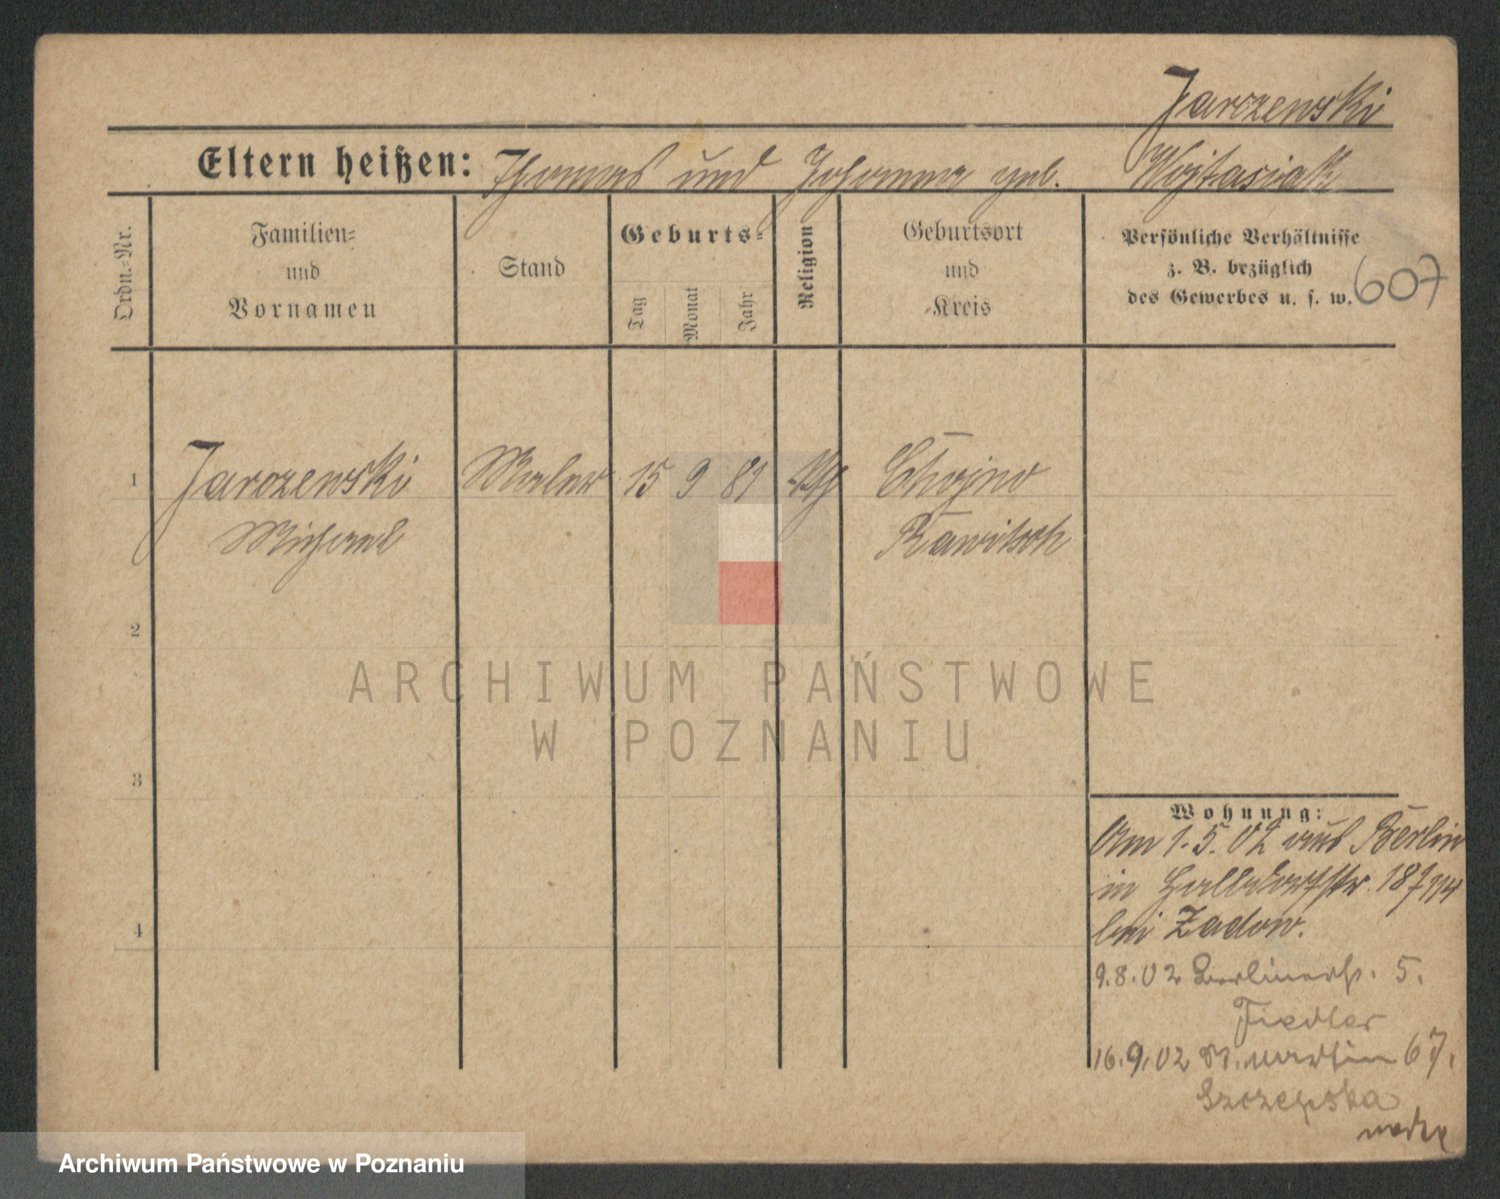 Jarczewski
Eltern heißen: Thomas und Johanna geb. Wojtasiak
Ordn.-Nr.
Familien-
und
Vornamen
Stand
Geburts-
Tag
Monat
Jahr
Religion
Geburtsort
und
Kreis
Persönliche Verhältnisse
z. B. bezüglich
des Gewerbes u. s. w.
607
1 Jarczewski Maler 15 9 81 Chojno
Michael Rawitsch
2
3
4
ARCHIWUM PAŃSTWOWE
W POZNANIU
Wohnung:
Am 1.5.02 aus Berlin
in
bei Zadow.
9.8.02 Berlinerstr. 5.
Fiedler
16.9.02 St. Martin 67.
Szczepska
Archiwum Państwowe w Poznaniu